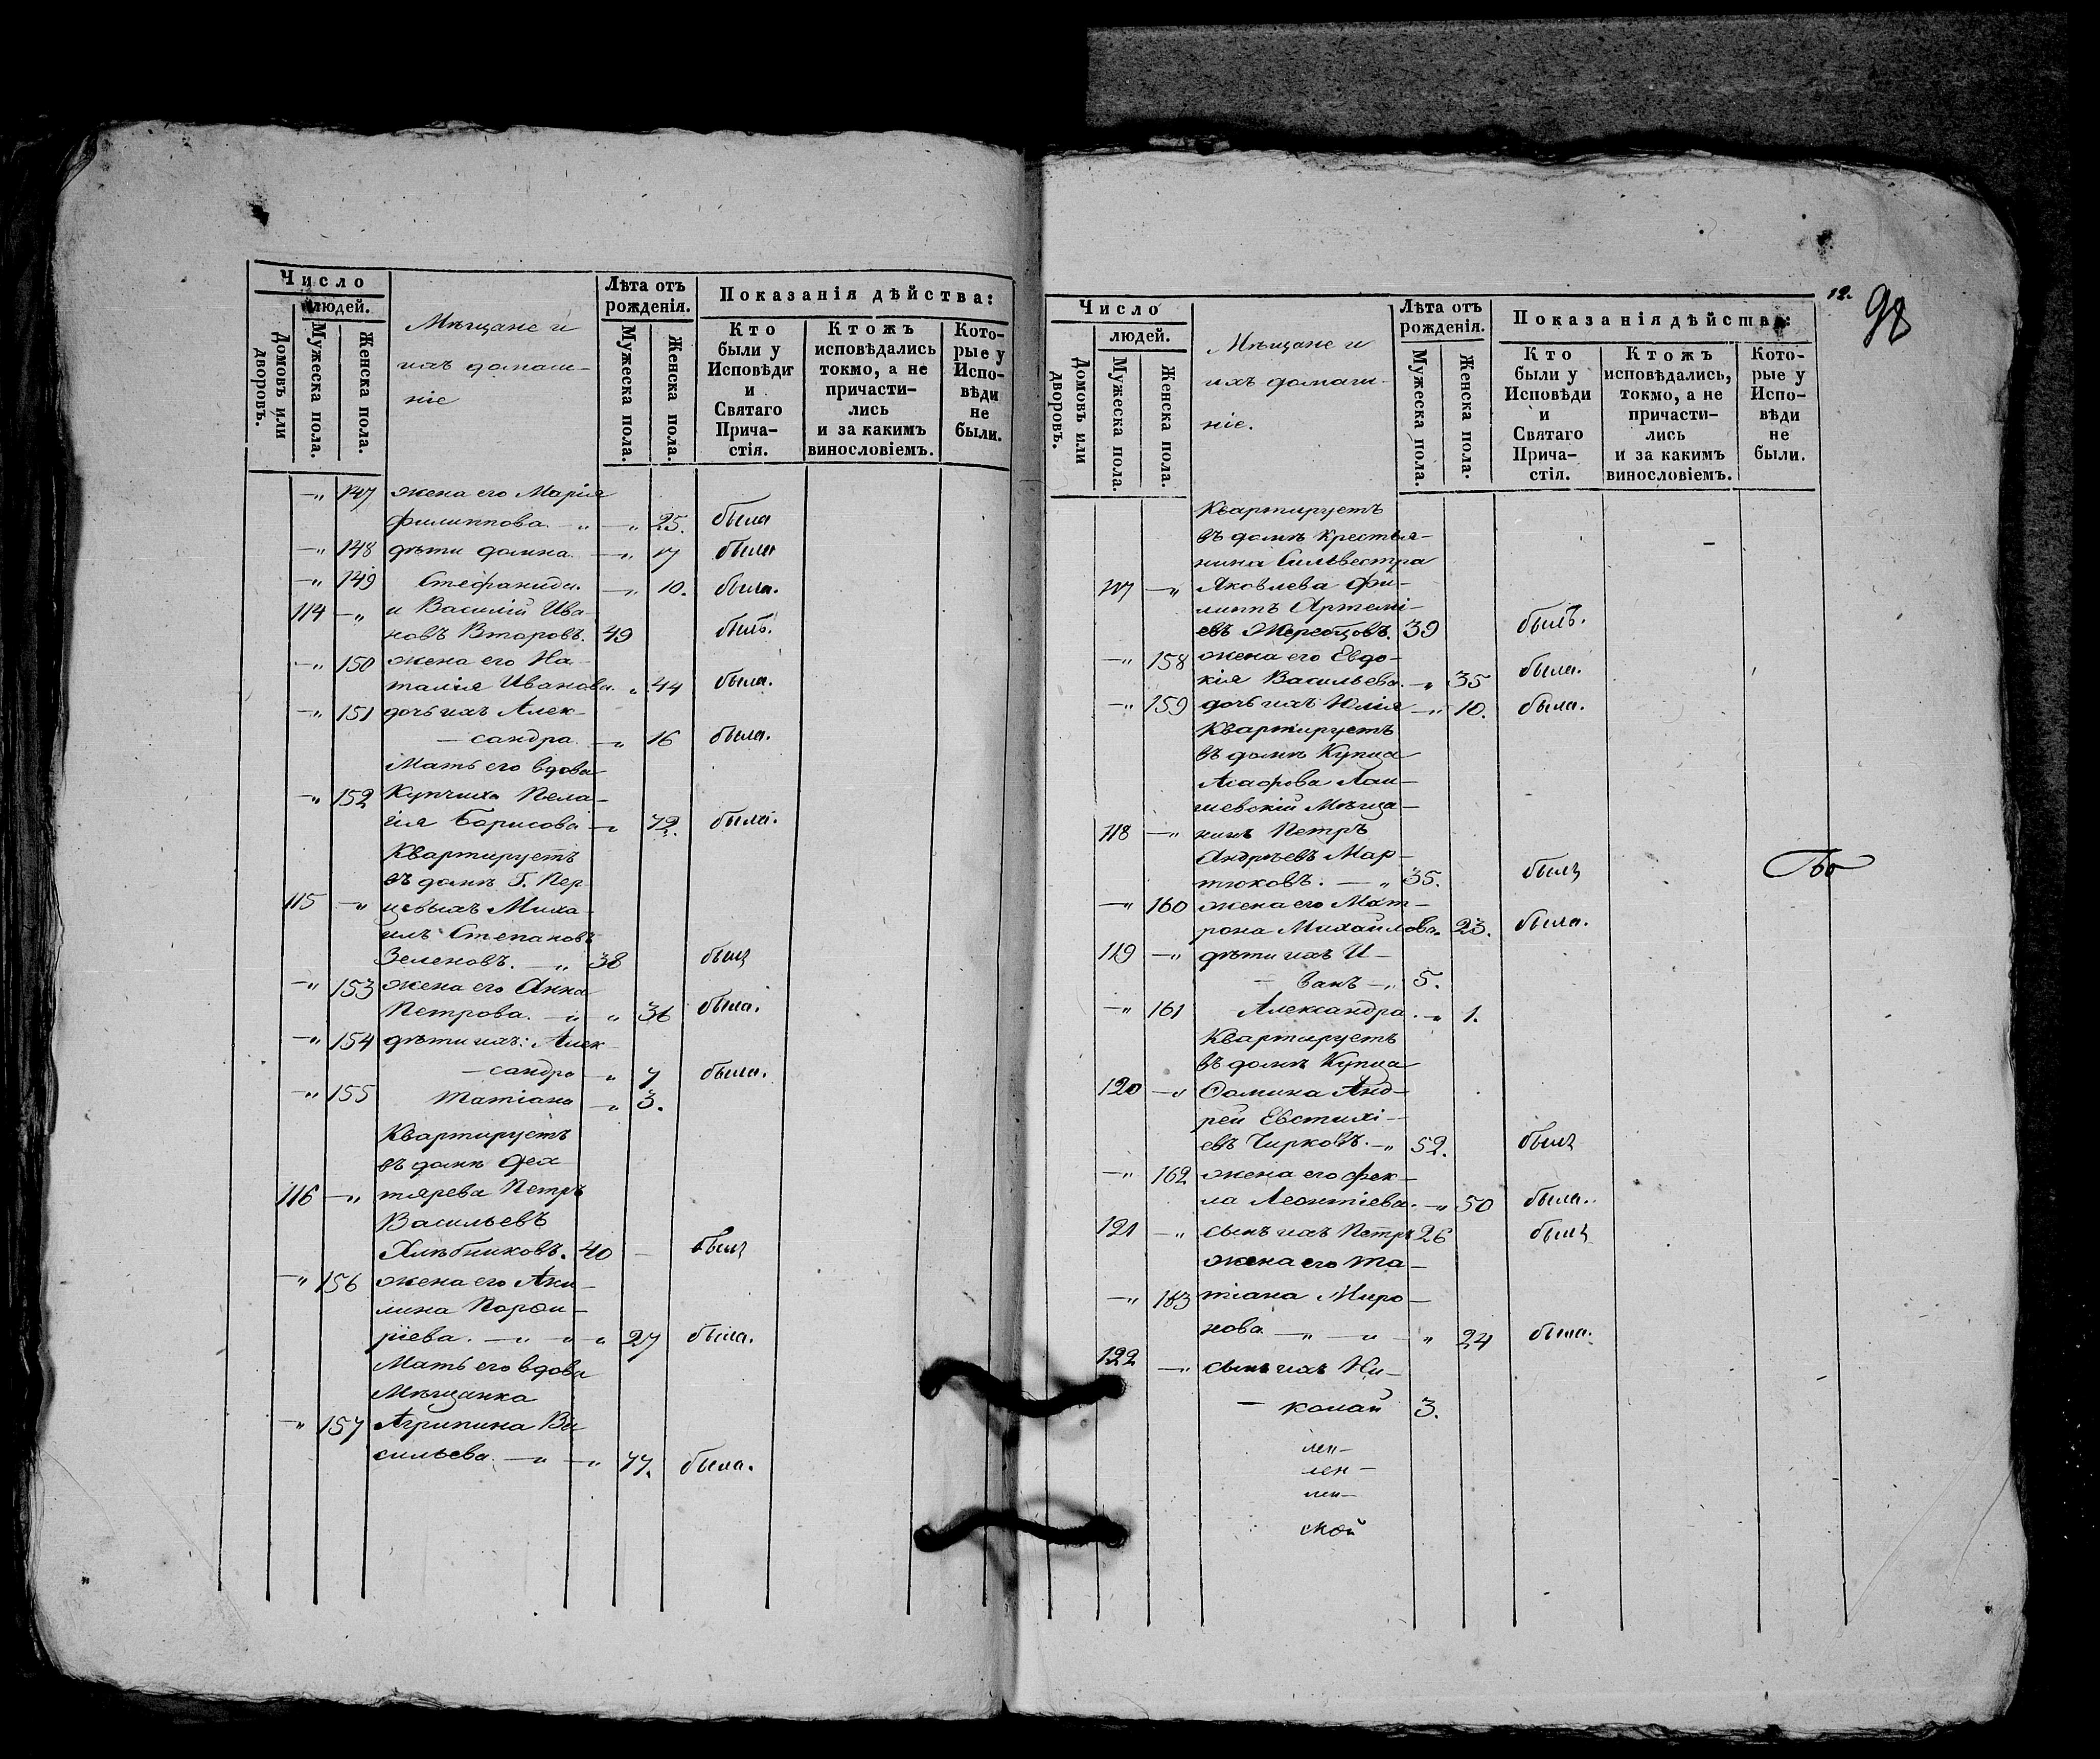 Число
людей.
Домовъ или дворовъ.
Мужеска пола.
Женска пола.
Мѣщане и
ихъ домаш-
ніе
Лѣта отъ
рожденія.
Мужеска пола.
Женска пола.
Показанія дѣйства:
Кто
были у
Исповѣди
и
Святаго
Прича-
стія.
Ктожъ
исповѣдались
токмо, а не
причасти-
лись
и за какимъ
винословіемъ.
Кото-
рые у
Испо-
вѣди
не
были.
—„ 147 жена его Марія
Филиппова. —„ —„ 25. была
—„ 148 дѣти Домна. —„ 17 была
—„ 149 Стефанида. —„ 10. была.
114 —„ и Василій Ива-
новъ Второвъ. 49 былъ.
—„ 150 жена его На-
талія Иванова. „ 44 была.
—„ 151 дочь ихъ Алек-
— сандра. —„ 16 была.
Мать его вдова
—„ 152 Купчиха Пела-
гія Борисова —„ 72. была.
Квартируетъ
въ домѣ Г. Пер-
115 —„ цевыхъ Миха-
илъ Степановъ
Зеленовъ. —„ 38 былъ
—„ 153 жена его Анна
Петрова. —„ „ 36 была.
—„ 154 дѣти ихъ: Алек-
— сандра —„ 7 была.
—„ 155 Татіана —„ 3.
Квартируетъ
въ домѣ
116 —„ Петръ
Васильевъ
Хлѣбниковъ. 40 — былъ
—„ 156 жена его Аки-
лина Порфи-
ріева. —„ „ „ 27 была.
Мать его вдова
Мѣщанка
—„ 157 Агрипина Ва-
сильева. —„ —„ 77. была.
12.
98
Число
людей.
Домовъ или дворовъ.
Мужеска пола.
Женска пола.
Мѣщане и
ихъ домаш-
ніе.
Лѣта отъ
рожденія.
Мужеска пола.
Женска пола.
Показанія дѣйства:
Кто
были у
Исповѣди
и
Святаго
Прича-
стія.
Ктожъ
исповѣдались,
токмо, а не
причасти-
лись
и за какимъ
винословіемъ.
Кото-
рые у
Испо-
вѣди
не
были.
Квартируетъ
въ домѣ крестья-
нина Сильвестра
117 —„ Яковлева Фи-
липпъ Артемі-
евъ Жеребцовъ. 39 былъ.
—„ 158 жена его Евдо-
кія Васильева. —„ 35 была.
—„ 159 дочь ихъ Юлія —„ 10. была.
Квартируетъ
въ домѣ Купца
Агафова Лаи-
шевскій Мѣща-
118 —„ нинъ Петръ
Андрѣевъ Мар-
тюковъ. —„ 35. былъ
—„ 160 жена его Мат-
рона Михайлова. 23. была.
119 —„ дѣти ихъ И-
— ванъ —„ 5.
—„ 161 Александра. —„ 1.
Квартируетъ
въ домѣ Купца
120 —„ Фомина Анд-
рей Евстихі-
евъ Чирковъ. —„ 52. былъ
—„ 162 жена его Фек-
ла Леонтіева. —„ 50 была.
121 —„ сынъ ихъ Петръ 26 былъ
жена его Та-
—„ 163 тіана Миро-
нова —„ —„ „ 24 была.
122 —„ сынъ ихъ Ни-
— колай 3.
лен-
лен-
лен-
ской